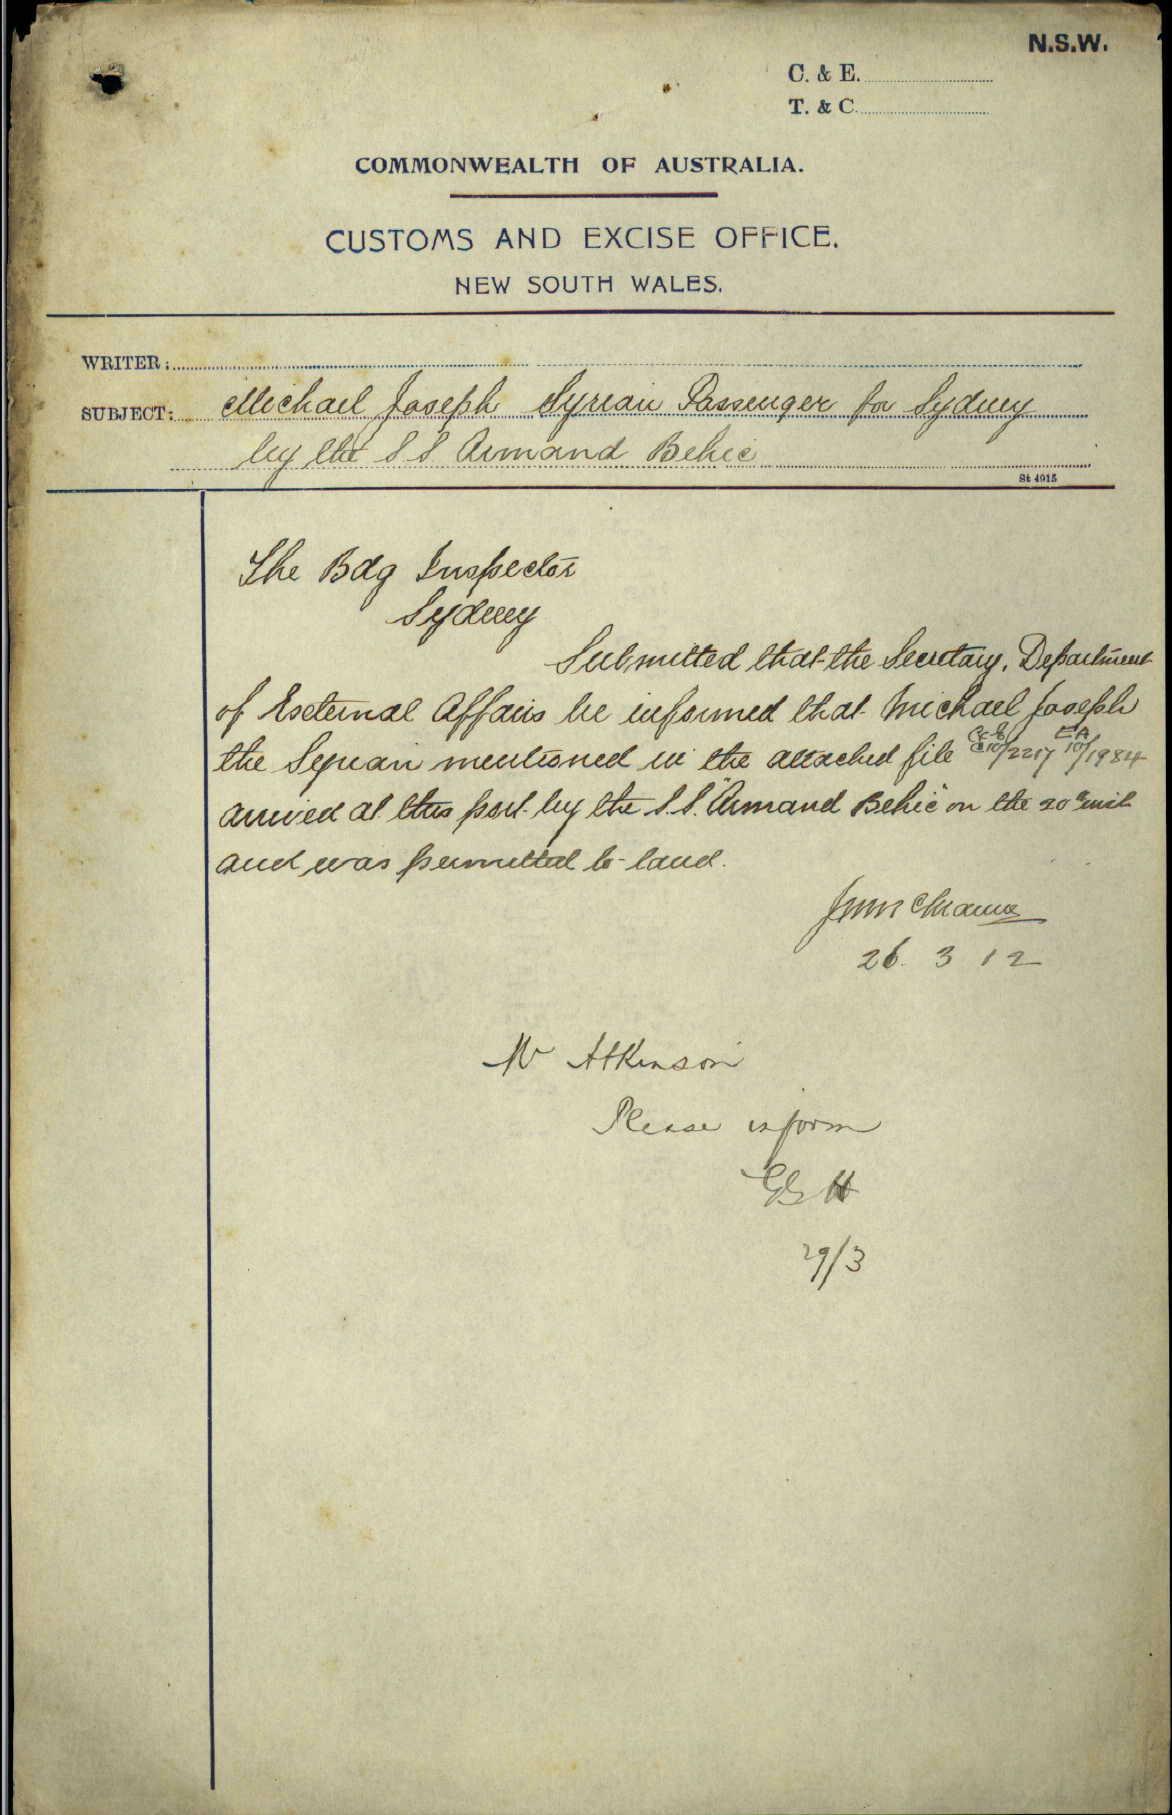 N.S.W.
C. & E.
T. & C.
COMMONWEALTH OF AUSTRALIA.
CUSTOMS AND EXCISE OFFICE.
NEW SOUTH WALES.
WRITER:
SUBJECT: Michael Joseph Syrian Passenger for Sydney
by the S S Armand Behic
St 4915
The Bdg Inspector
Sydney
Submitted that the Secretary, Department
of External Affairs be informed that Michael Joseph
the Syrian mentioned in the attached file C10/2217 EA 10/1984
arrived at this port by the S.S. "Armand Behic" on the 20th inst
and was permitted to land.
26. 3 12
Mr Atkinson
Please inform
29/3